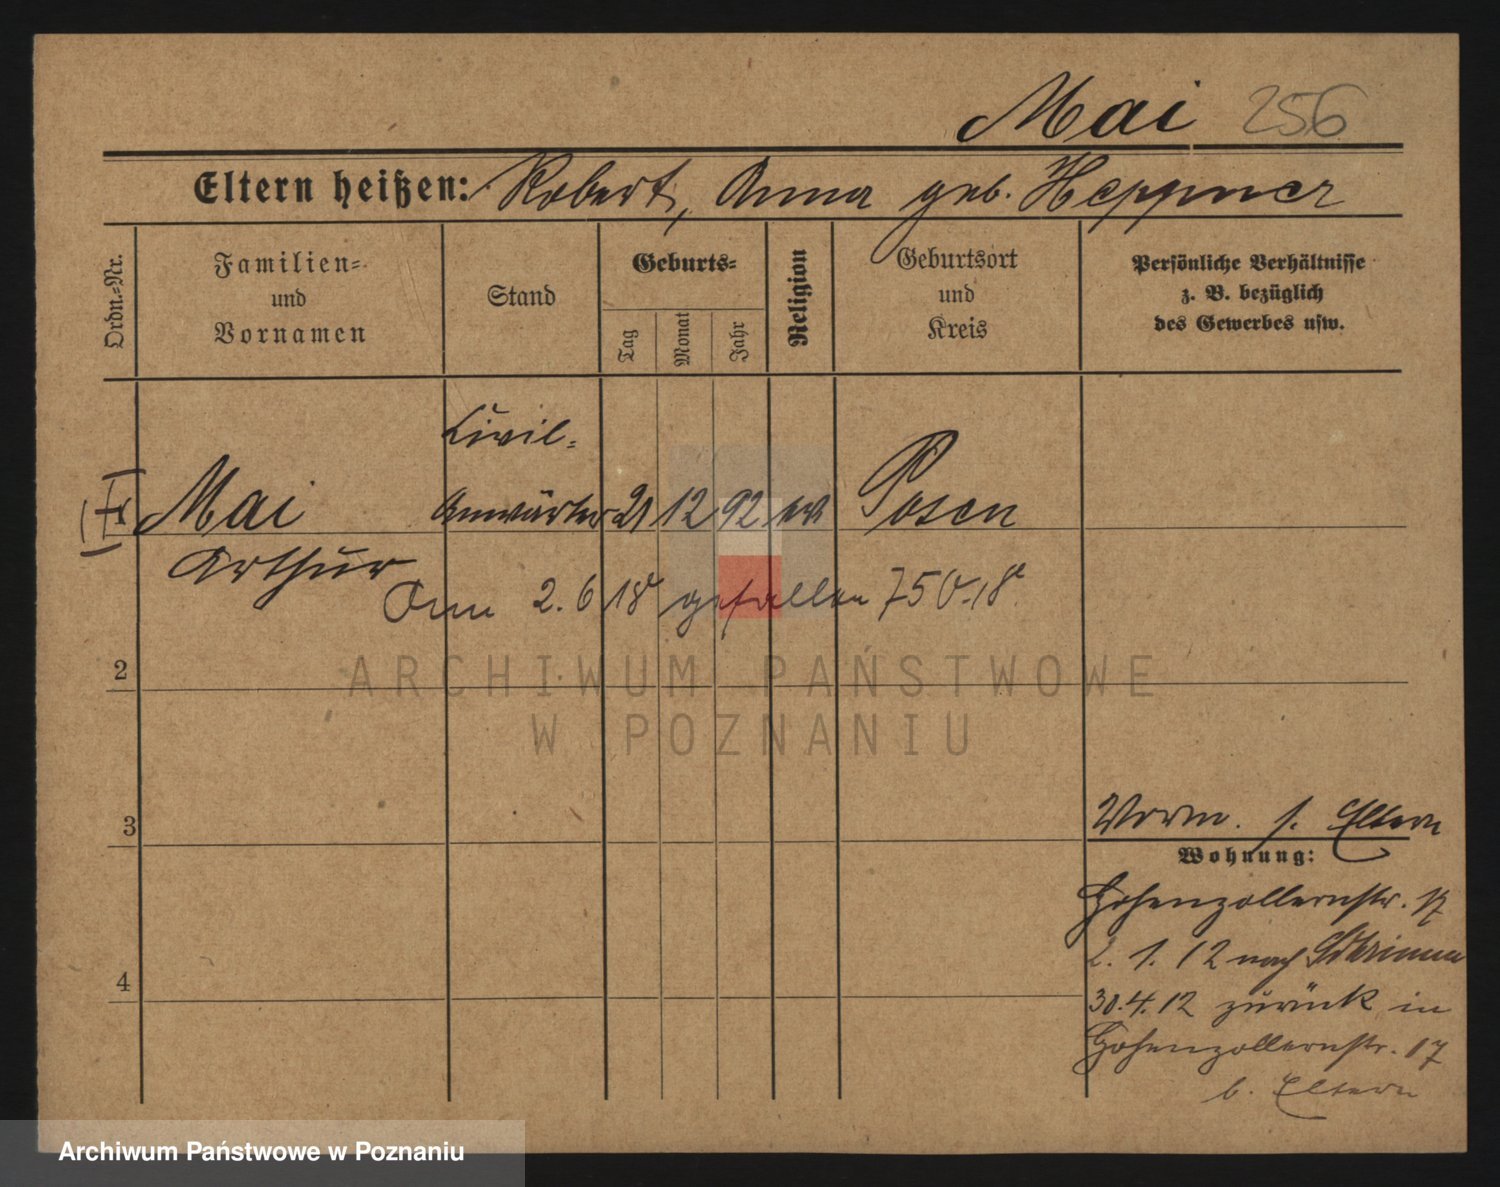 Mai 256
Eltern heißen: Robert, Anna geb. Heppner
Ordn.-Nr.
Familien-
und
Vornamen
Stand
Geburts-
Tag
Monat
Jahr
Religion
Geburtsort
und
Kreis
Persönliche Verhältnisse
z. B. bezüglich
des Gewerbes usw.
Civil-
Mai Anwärter 21 12 92 ev Posen
Arthur
Am 2.6 18 gefallen 750.18
2
3
4
Vorm. s. Eltern
Wohnung:
Hohenzollernstr. 17
2. 1. 12 nach Schrimm
30.4.12 zurück in
Hohenzollernstr. 17
b. Eltern
ARCHIWUM PAŃSTWOWE
W POZNANIU
Archiwum Państwowe w Poznaniu